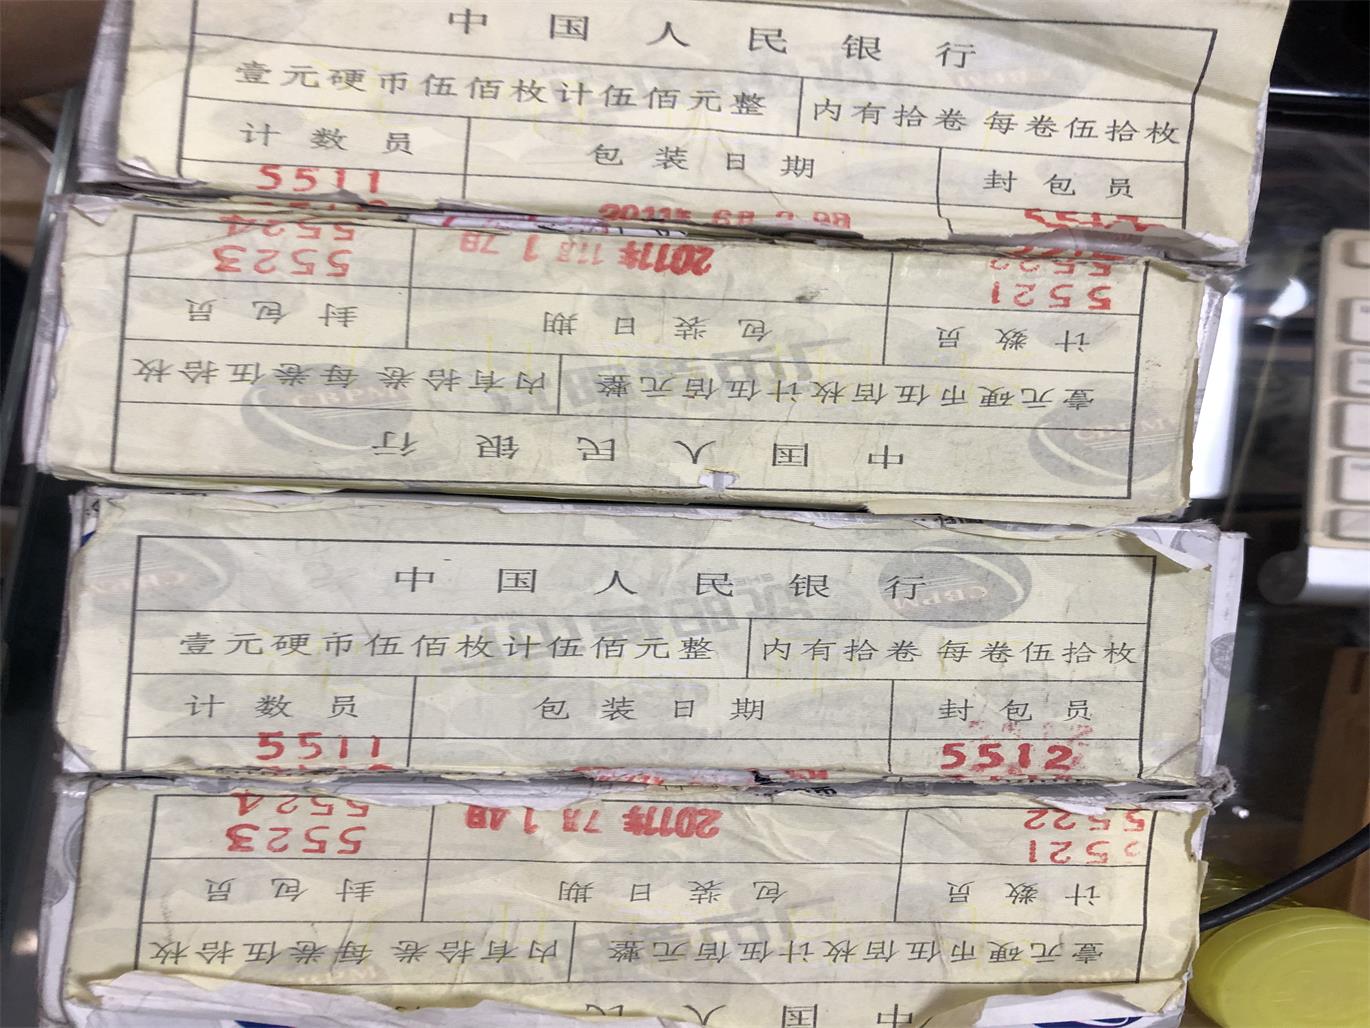 中国人民银行
壹元硬币伍佰枚计伍佰元整 内有拾卷 每卷伍拾枚
计数员 包装日期 封包员
5511
中国人民银行
壹元硬币伍佰枚计伍佰元整 内有拾卷 每卷伍拾枚
计数员 包装日期 封包员
5521 2011年11月17日 5523
5522 5524
中国人民银行 CBPM
壹元硬币伍佰枚计伍佰元整 内有拾卷 每卷伍拾枚
计数员 包装日期 封包员
5511 5512
中国人民
壹元硬币伍佰枚计伍佰元整 内有拾卷 每卷伍拾枚
计数员 包装日期 封包员
5521 2011年7月14日 5523
5522 5524